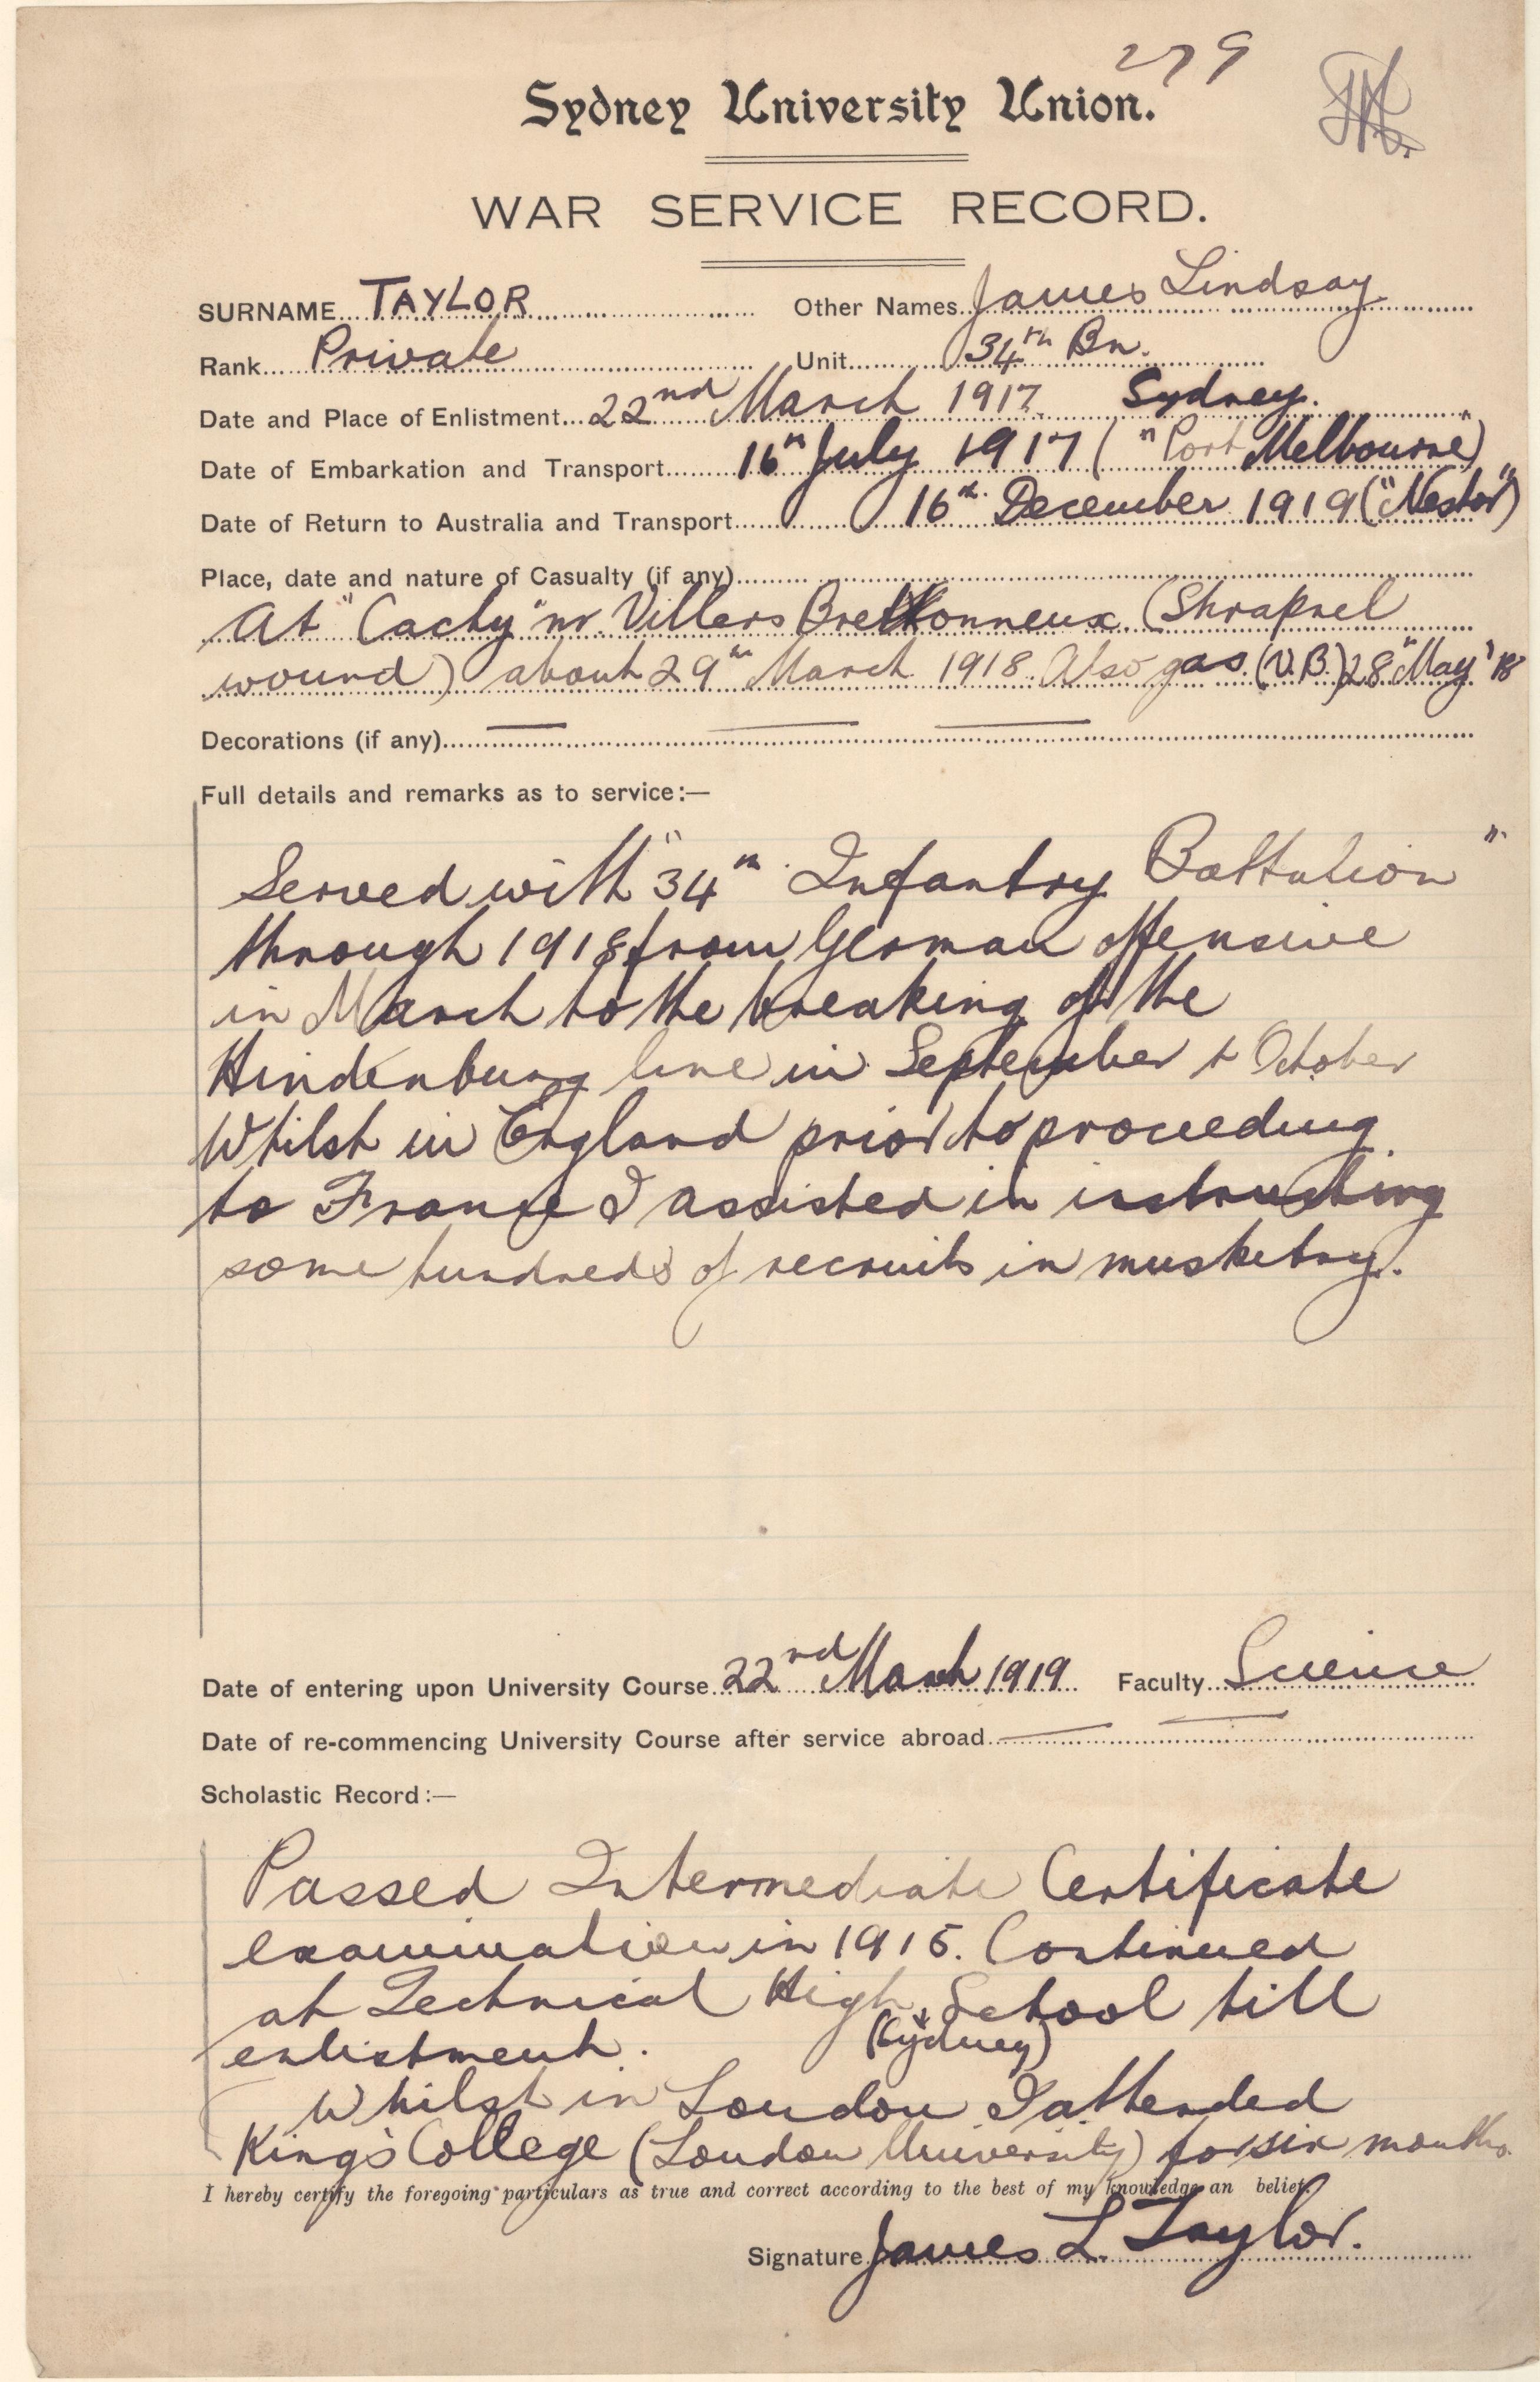 279
Sydney University Union.
WAR SERVICE RECORD.
SURNAME TAYLOR Other Names James Lindsay
Rank Private Unit 34th Bn.
Date and Place of Enlistment 22nd March 1917. Sydney.
Date of Embarkation and Transport 16th July 1917 ("Port Melbourne")
Date of Return to Australia and Transport 16th December 1919 ("Nestor")
Place, date and nature of Casualty (if any)
At "Cachy" nr. Villers Brettonneux. (Shrapnel
wound) about 29th March 1918. Also gas (V.B.) 28th May '18
Decorations (if any)
Full details and remarks as to service:—
Served with "34th Infantry Battalion"
through 1918 from German offensive
in March to the breaking of the
Hindenburg line in September & October
Whilst in England prior to proceeding
to France I assisted in instructing
some hundreds of recruits in musketry.
Date of entering upon University Course 22nd March 1919 Faculty Science
Date of re-commencing University Course after service abroad
Scholastic Record:—
Passed Intermediate Certificate
examination in 1915. Continued
at Technical High School till
enlistment. (Sydney)
Whilst in London I attended
King's College (London University) for six months.
I hereby certify the foregoing particulars as true and correct according to the best of my knowledge an belief.
Signature James L. Taylor.